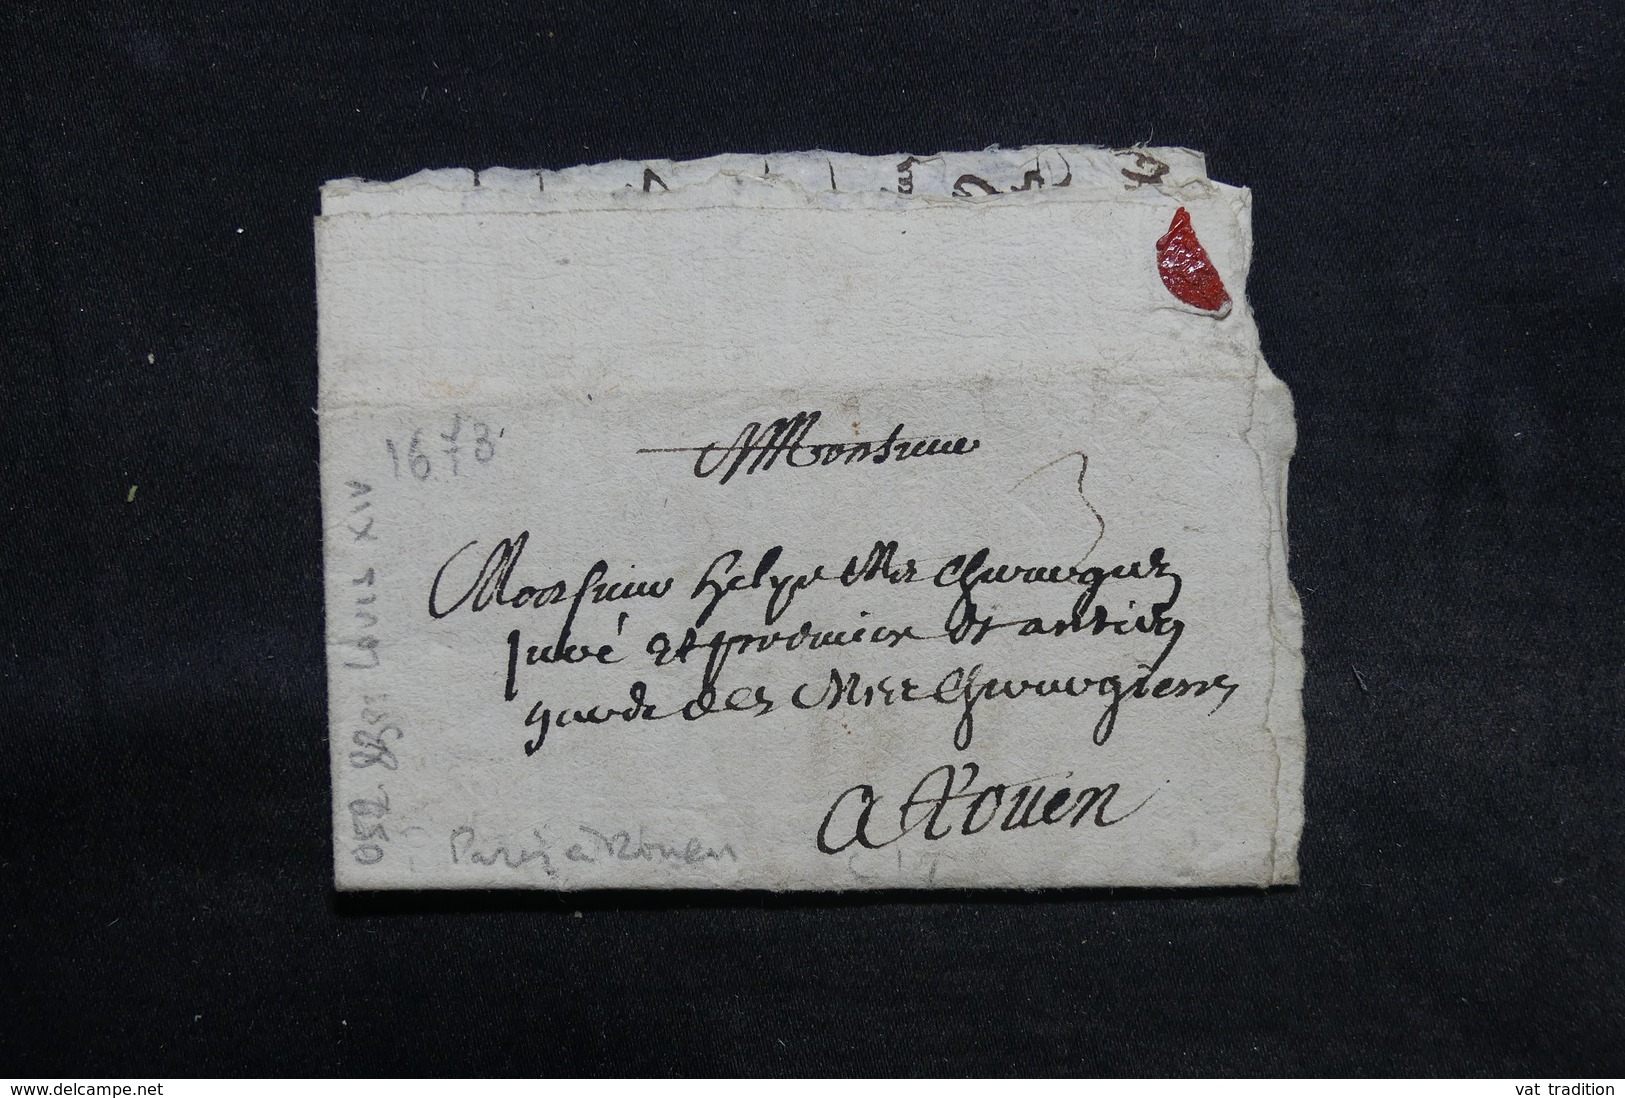 Monsieur
1673
3
Monsieur helye Me Chirurgien
juré et premier et antien
garde des Mes Chirurgiens
A Rouen
Louis XIV
Paris à Rouen
www.delcampe.net
vat tradition